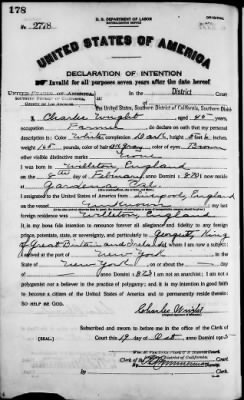 178
U. S. DEPARTMENT OF LABOR
No. 2778
UNITED STATES OF AMERICA
DECLARATION OF INTENTION
Invalid for all purposes seven years after the date hereof
United States of America
District
Southern District of California
The United States, Southern District of California, Southern Division
I, Charles Wright, aged 40 years,
occupation Farmer, do declare on oath that my personal
description is: Color White, complexion Dark, height 5 feet 6 inches,
weight 165 pounds, color of hair Gray, color of eyes Brown
other visible distinctive marks None
I was born in England
on the 8th day of February, anno Domini 1
Gardena Cal.
I emigrated to the United States of America from Liverpool, England
on the vessel Unknown; my last
foreign residence was England
It is my bona fide intention to renounce forever all allegiance and fidelity to any foreign
prince, potentate, state, or sovereignty, and particularly to George V, King
of Great Britain and Ireland, of whom I am now a subject;
I arrived at the port of New York, in the
State of New York, on or about the day
of, anno Domini 1; I am not an anarchist; I am not a
polygamist nor a believer in the practice of polygamy; and it is my intention in good faith
to become a citizen of the United States of America and to permanently reside therein:
SO HELP ME GOD.
Charles Wright
Subscribed and sworn to before me in the office of the Clerk of
[SEAL.]
Court this 19 day of Oct, anno Domini 19
Clerk of the